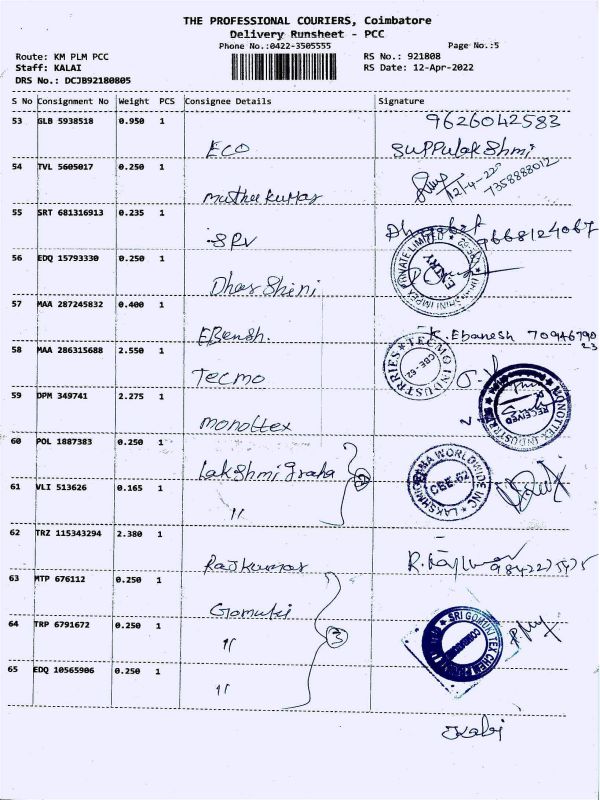 THE PROFESSIONAL COURIERS, Coimbatore
Delivery Runsheet - PCC
Phone No.:0422-3505555
Page No.:5
Route: KM PLM PCC
RS No.: 921808
Staff: KALAI
RS Date: 12-Apr-2022
DRS No.: DCJB92180805
S No Consignment No Weight PCS Consignee Details Signature
53 GLB 5938518 0.950 1
9626042583
ECO
Suppulakshmi
54 TVL 5605017 0.250 1
12/4-22
7358888012
Muthukumar
55 SRT 681316913 0.235 1
SRV
9668124067
56 EDQ 15793330 0.250 1
PRIVATE LIMITED
Dharshini
57 MAA 287245832 0.400 1
EBensh.
K.Ebanesh 70946790
23
58 MAA 286315688 2.550 1
TECMO INDUSTRIES
CBE-62
Tecmo
59 DPM 349741 2.275 1
MONOTEX INDUSTRIES
RECEIVED
monottex
60 POL 1887383 0.250 1
Lakshmi graha
LAKSHMIGRAHA WORLDWIDE INC
CBE-62
61 VLI 513626 0.165 1
"
2
62 TRZ 115343294 2.380 1
Rajkumar
63 MTP 676112 0.250 1
Gomuki
64 TRP 6791672 0.250 1
"
3
SRI GOMUKI TEX
65 EDQ 10565906 0.250 1
"